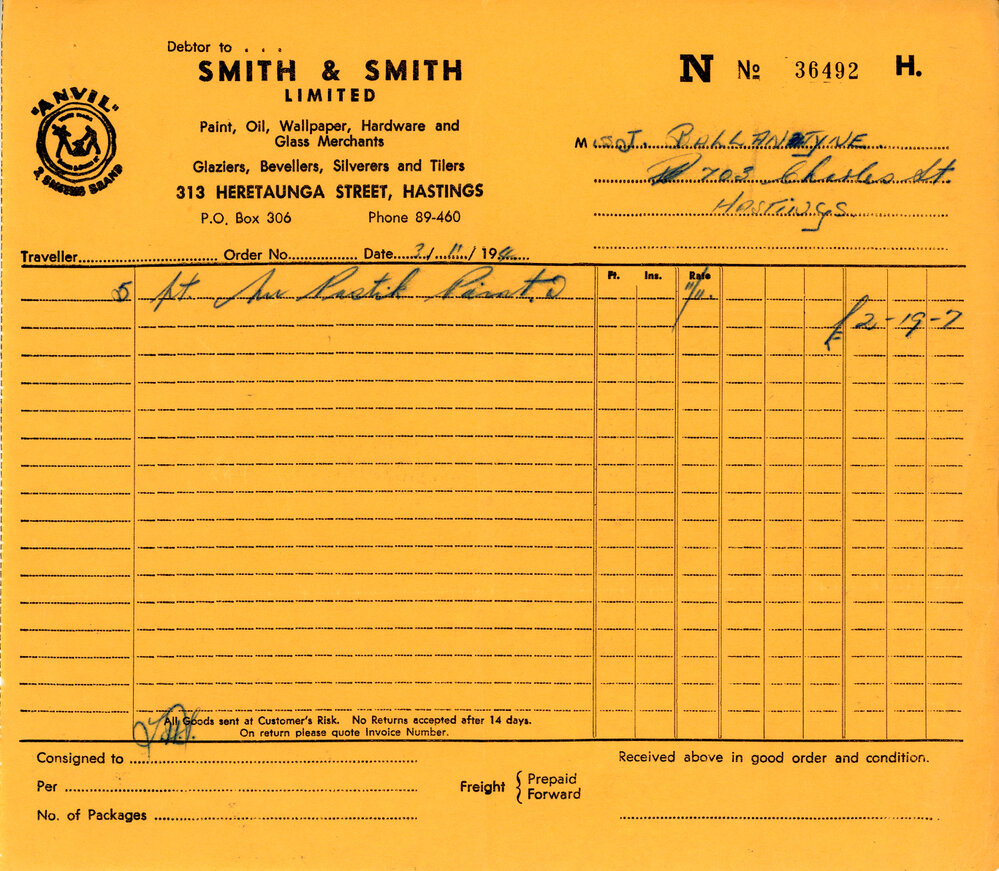 Debtor to . . .
SMITH & SMITH
LIMITED
Paint, Oil, Wallpaper, Hardware and
Glass Merchants
Glaziers, Bevellers, Silverers and Tilers
313 HERETAUNGA STREET, HASTINGS
P.O. Box 306 Phone 89-460
"ANVIL"
2 SMITHS BRAND
N No 36492 H.
M J. BALLANTYNE.
703 Charles St.
HASTINGS
Traveller Order No. Date 3/11/19
Ft. Ins. Rate
5 pt. Paint 11/11.
£2-19-7
All Goods sent at Customer's Risk. No Returns accepted after 14 days.
On return please quote Invoice Number.
Consigned to
Per
No. of Packages
Freight { Prepaid
Forward
Received above in good order and condition.